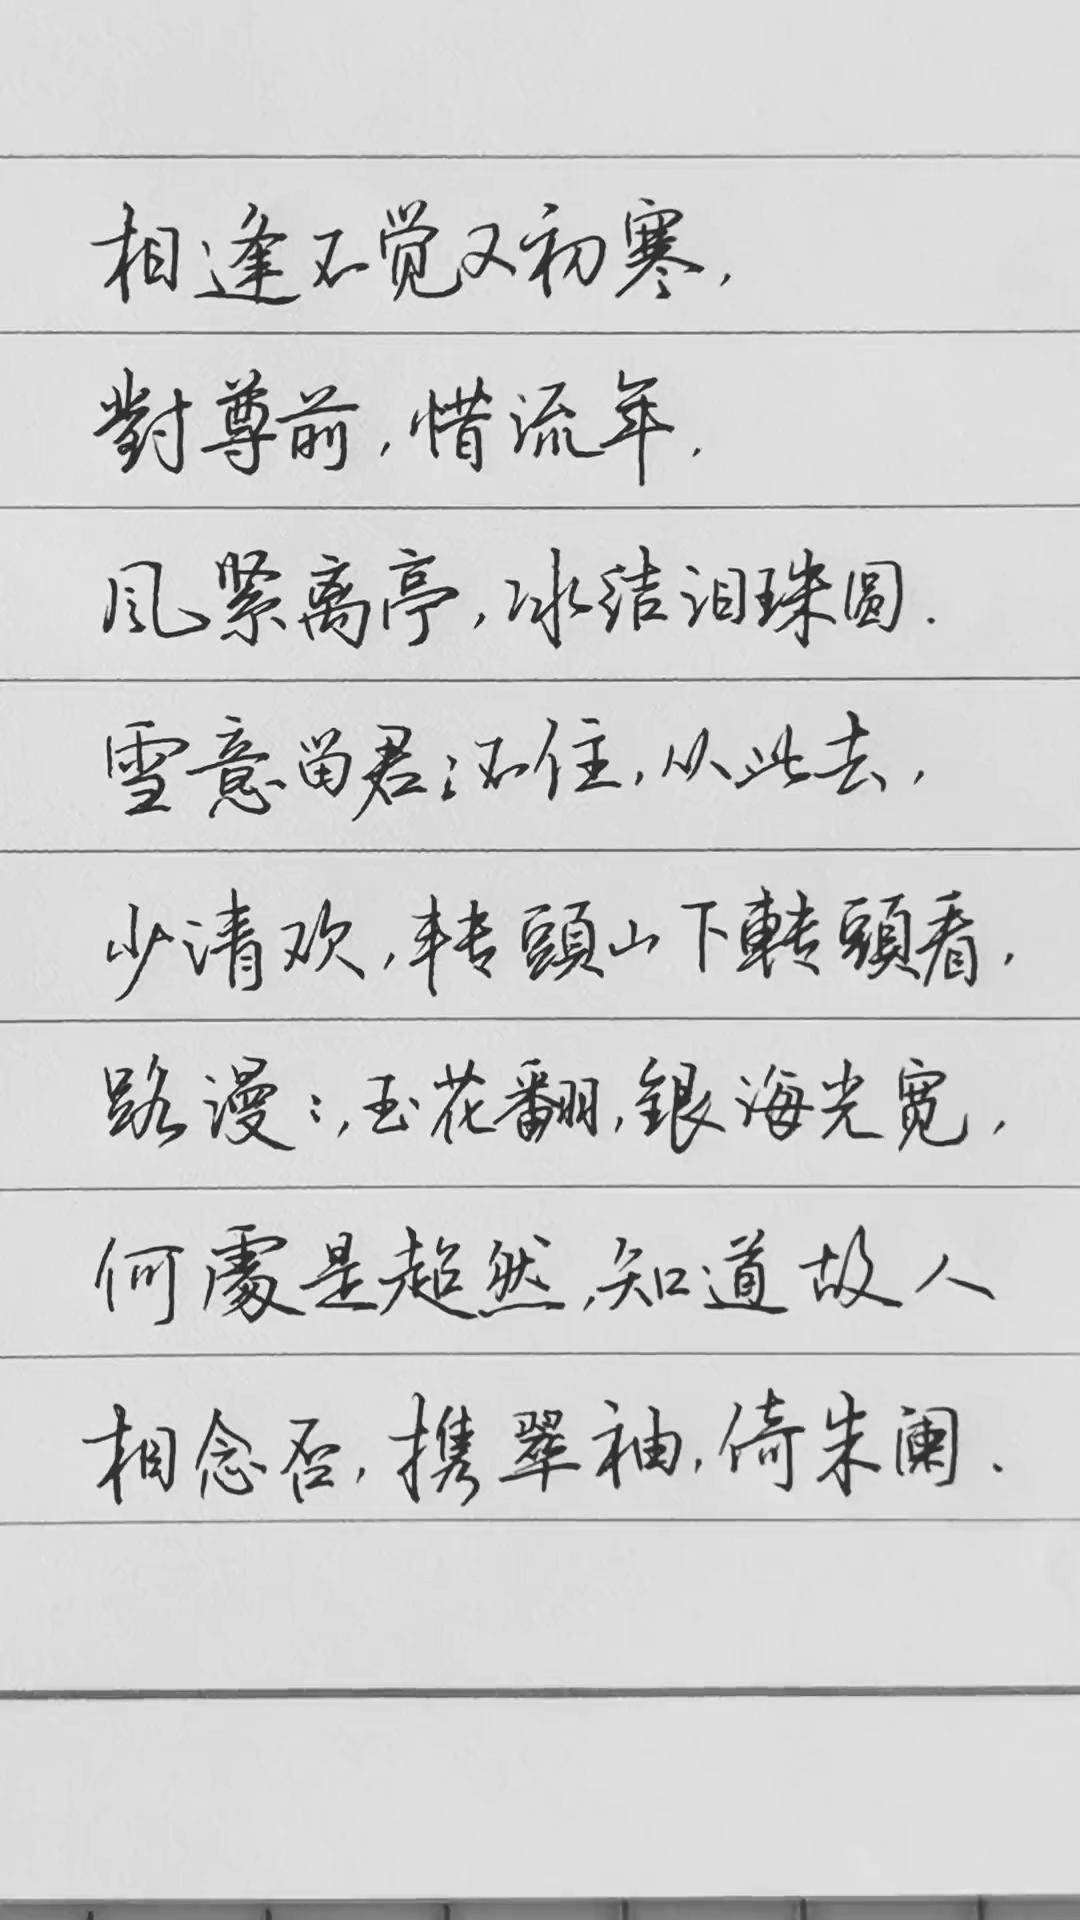 相逢不觉又初寒，
對尊前，惜流年，
风紧离亭，冰结泪珠圆．
雪意留君：不住，从此去，
少清欢，转頭山下轉頭看，
路漫：，玉花翻，銀海光宽，
何處是超然，知道故人
相念否，携翠袖，倚朱阑．